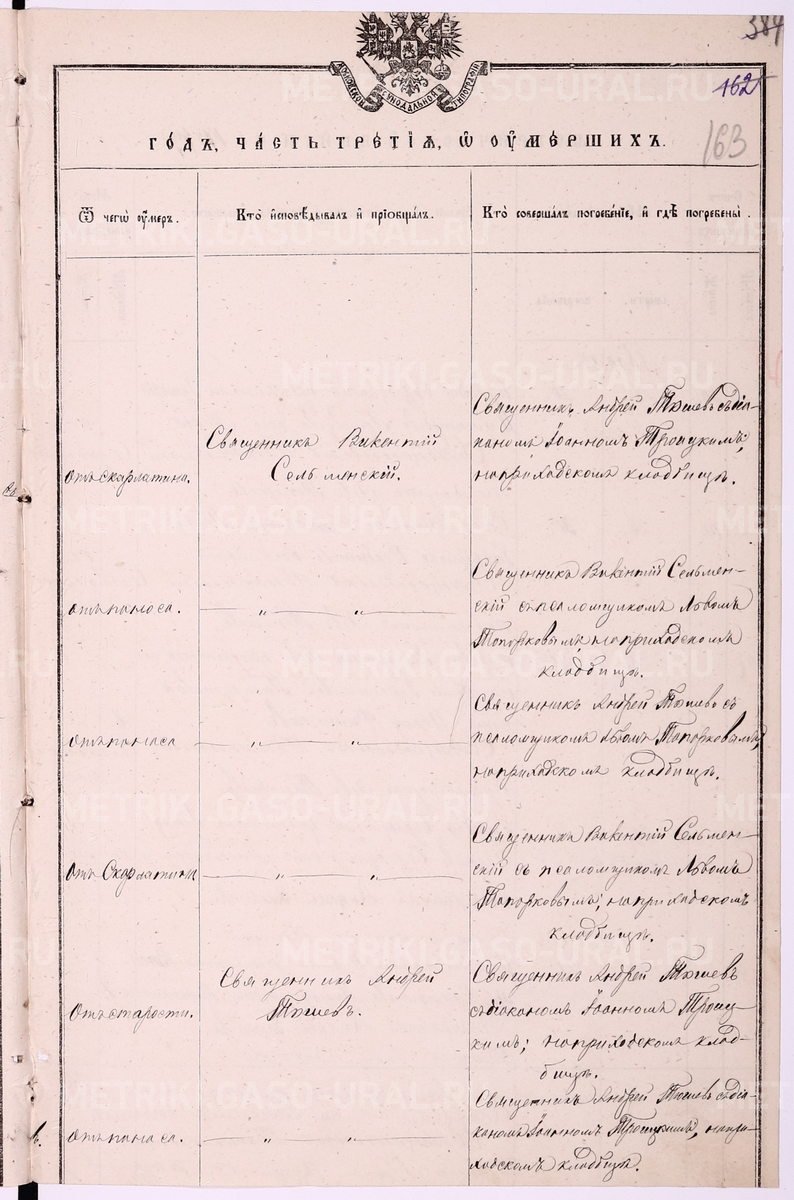 384
162
163
МОСКОВСКОЙ СѴНОДАЛЬНОЙ ТИПОГРАФІИ
ГО́ДЪ, ЧА́СТЬ ТРЕ́ТІЯ, Ѿ ОУ҆МЕ́РШИХЪ.
Ѿ чегѡ̀ оу҆́меръ.
Кто̀ и҆сповѣ́дывалъ и҆ прїѡбща́лъ.
Кто̀ соверша́лъ погребе́нїе, и҆ гдѣ̀ погребены̀.
отъ скарлатины.
Священникъ Викентій
Сельменскій.
Священникъ Андрей съ діа-
кономъ Іоанномъ Троицкимъ;
на приходскомъ кладбищѣ.
отъ поноса.
— „ — „ —
Священникъ Викентій Сельмен-
скій съ псаломщикомъ Львомъ
Топорковымъ; на приходскомъ
кладбищѣ.
отъ поноса
— „ — „ —
Священникъ Андрей съ
псаломщикомъ Львомъ Топорковымъ;
на приходскомъ кладбищѣ.
отъ Скарлатины
— „ — „ —
Священникъ Викентій Сельмен-
скій съ псаломщикомъ Львомъ
Топорковымъ; на приходскомъ
кладбищѣ.
Отъ старости.
Священникъ Андрей
Священникъ Андрей
съ діакономъ Іоанномъ Троиц-
кимъ; на приходскомъ клад-
бищѣ.
отъ поноса.
— „ — „ —
Священникъ Андрей съ діа-
кономъ Іоанномъ Троицкимъ, на при-
ходскомъ кладбищѣ.
METRIKI.GASO-URAL.RU